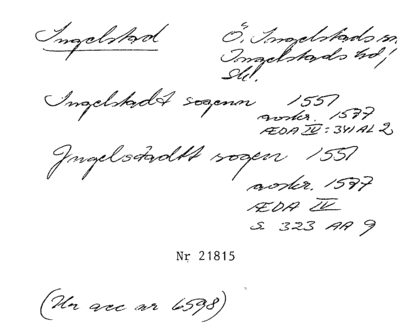 Ingelstad
Ö. Ingelstads sn,
Ingelstads hd,
Sk.
Ingelstadt sogenn 1551
avskr. 1577
ÆDA IV: 341 AL 2
Jngelstadtt sogen 1551
avskr. 1577
ÆDA IV
s 323 AA 9
Nr 21815
(Ur acc nr 6598)